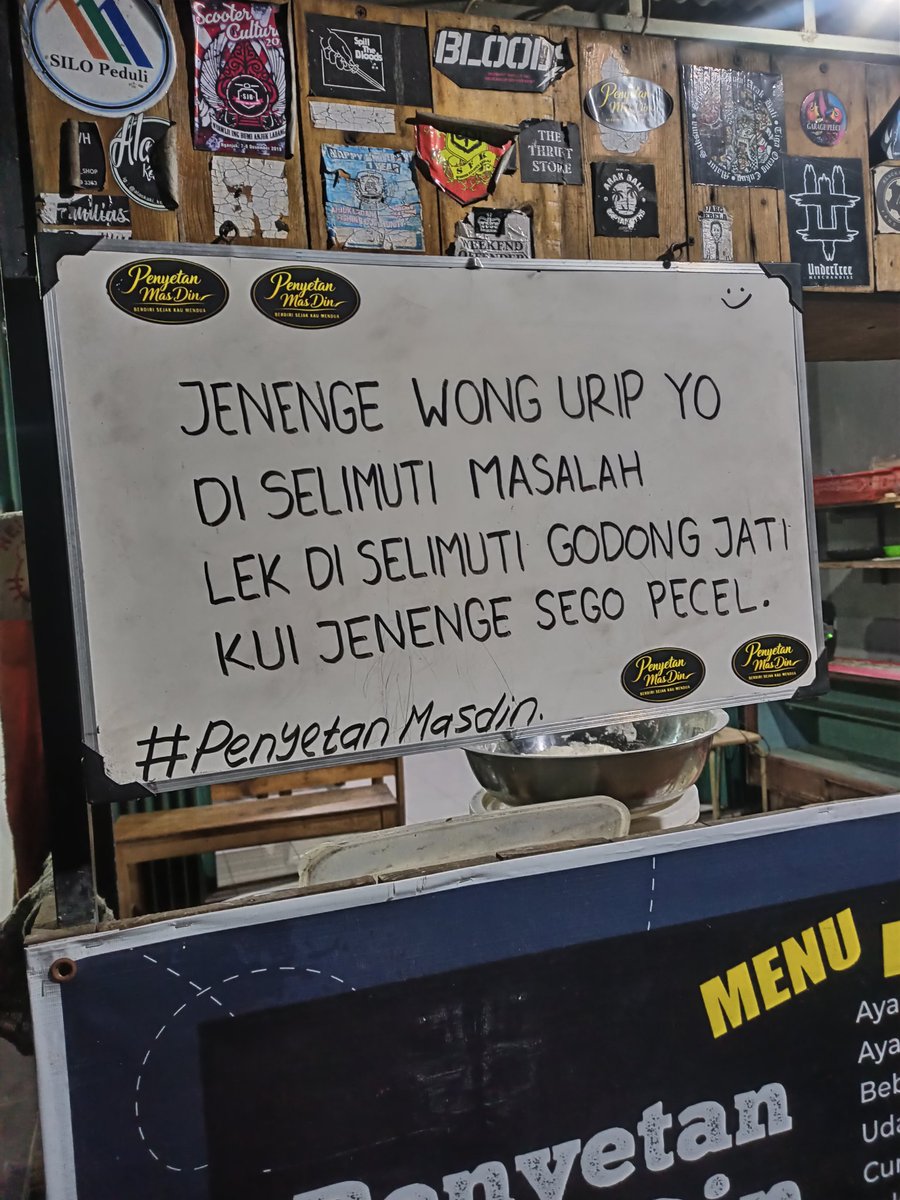 SILO Peduli
Scooter
Cultur
Spill The
Bloods
BLOOD
Penyetan
Mas Din
THE
THRIFT
STORE
ARAK BALI
WEEKEND
OFFENDER
UNDERTREE
MERCHANDISE
Familias
Penyetan
Mas Din
BERDIRI SEJAK KAU MENDUA
Penyetan
Mas Din
BERDIRI SEJAK KAU MENDUA
JENENGE WONG URIP YO
DI SELIMUTI MASALAH
LEK DI SELIMUTI GODONG JATI
KUI JENENGE SEGO PECEL.
Penyetan
Mas Din
BERDIRI SEJAK KAU MENDUA
Penyetan
Mas Din
BERDIRI SEJAK KAU MENDUA
#Penyetan Masdin.
MENU
Aya
Aya
Beb
Uda
Cum
Penyetan